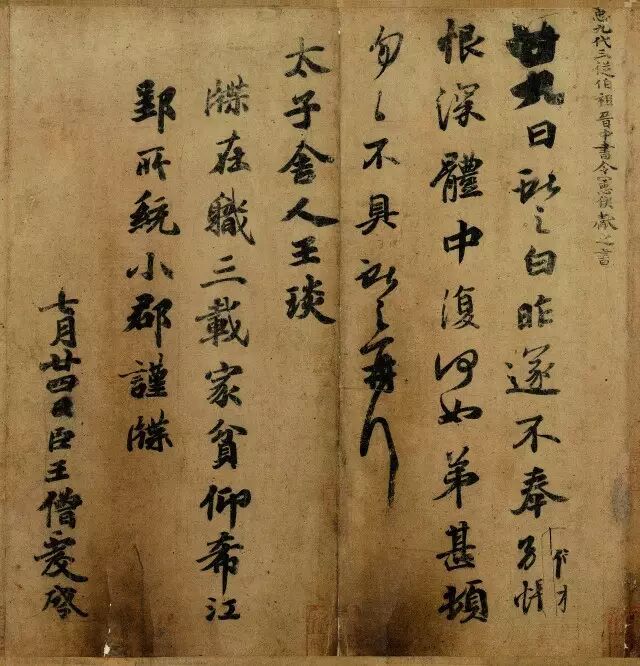 臣九代三從伯祖晉中書令憲侯獻之書
廿九日獻之白昨遂不奉別悵
恨深體中復何如弟甚頓
勿々不具獻之再拜
太子舍人王琰
牒在職三載家貧仰希江
郢所統小郡謹牒
七月廿四日臣王僧虔啓